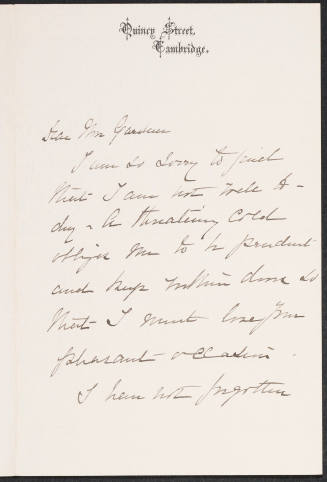 Quincy Street,
Cambridge.
Dear Mrs Gardner
I am so sorry to find
that I am not well to-
day - A threatening cold
obliges me to be prudent
and keep within doors so
that I must lose your
pleasant occasion.
I have not forgotten